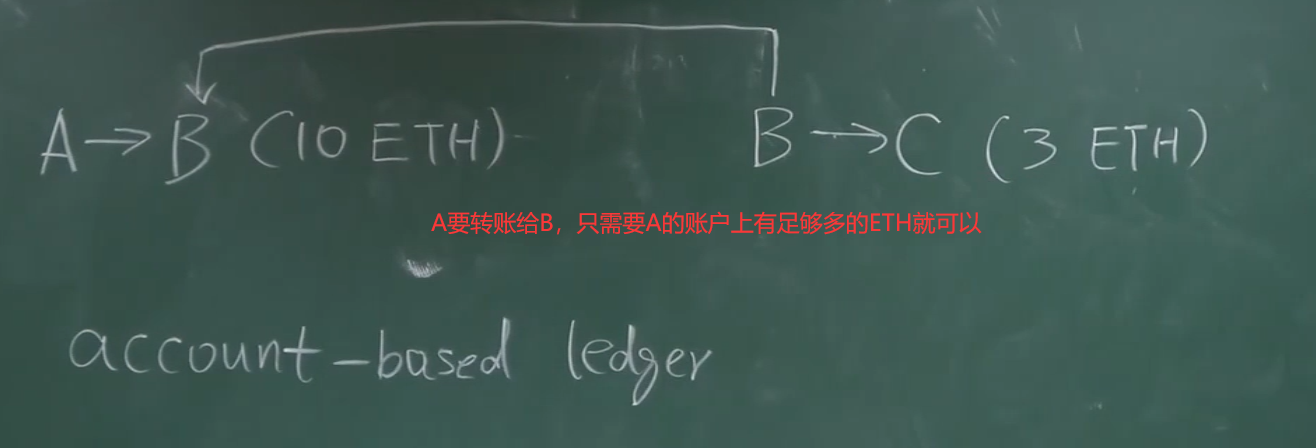 A→B (10 ETH) B→C (3 ETH)
A要转账给B，只需要A的账户上有足够多的ETH就可以
account-based ledger